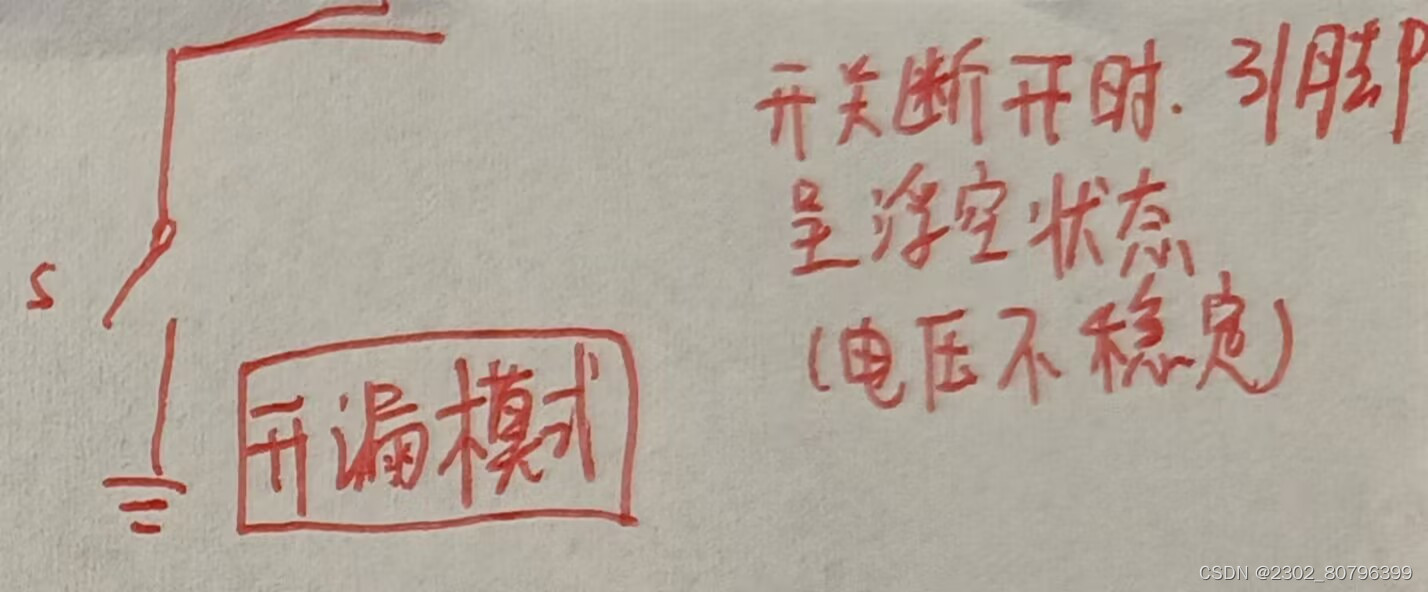 开关断开时. 引脚P
呈浮空状态
(电压不稳定)
S
开漏模式
CSDN @2302_80796399